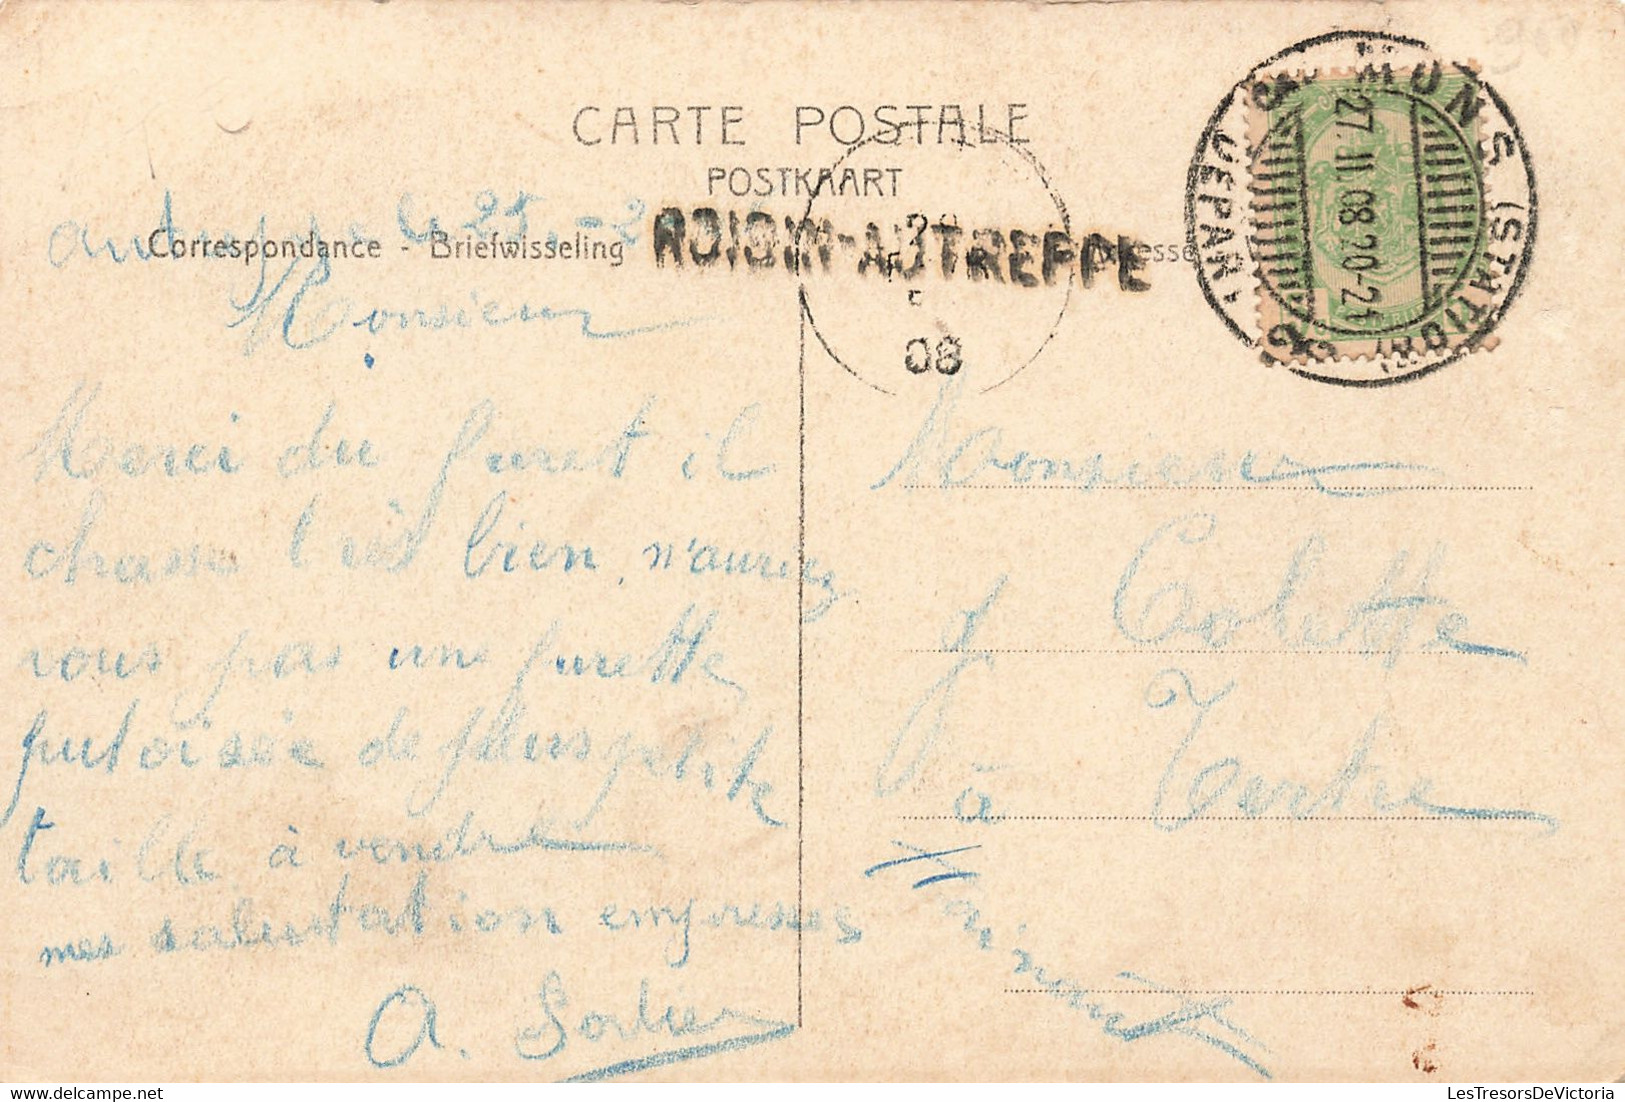 CARTE POSTALE
POSTKAART
Correspondance - Briefwisseling
ROISIN-AUTREPPE
08
MONS (STATION)
(DEPART)
27.II.08 20-21
le 25-2
Monsieur
Merci du furet il
chasse très bien, n'auriez
vous pas une furette
putoisée de plus petite
taille à vendre
mes salutation empresses
A. Sortier
Monsieur
J Colette
à Tertre
Hainaut
LesTresorsDeVictoria